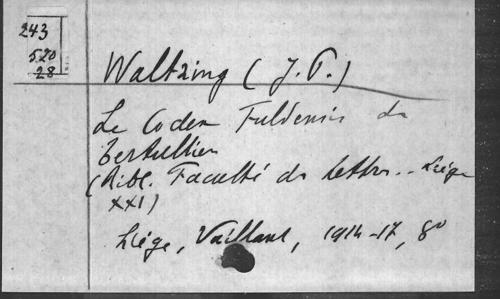 243
520
28
Waltzing (J. P.)
Le Codex Fuldensis de
Tertullien
(Bibl. Faculté de lettres.. Liége
XXI)
Liége, Vaillant, 1914-17, 8º